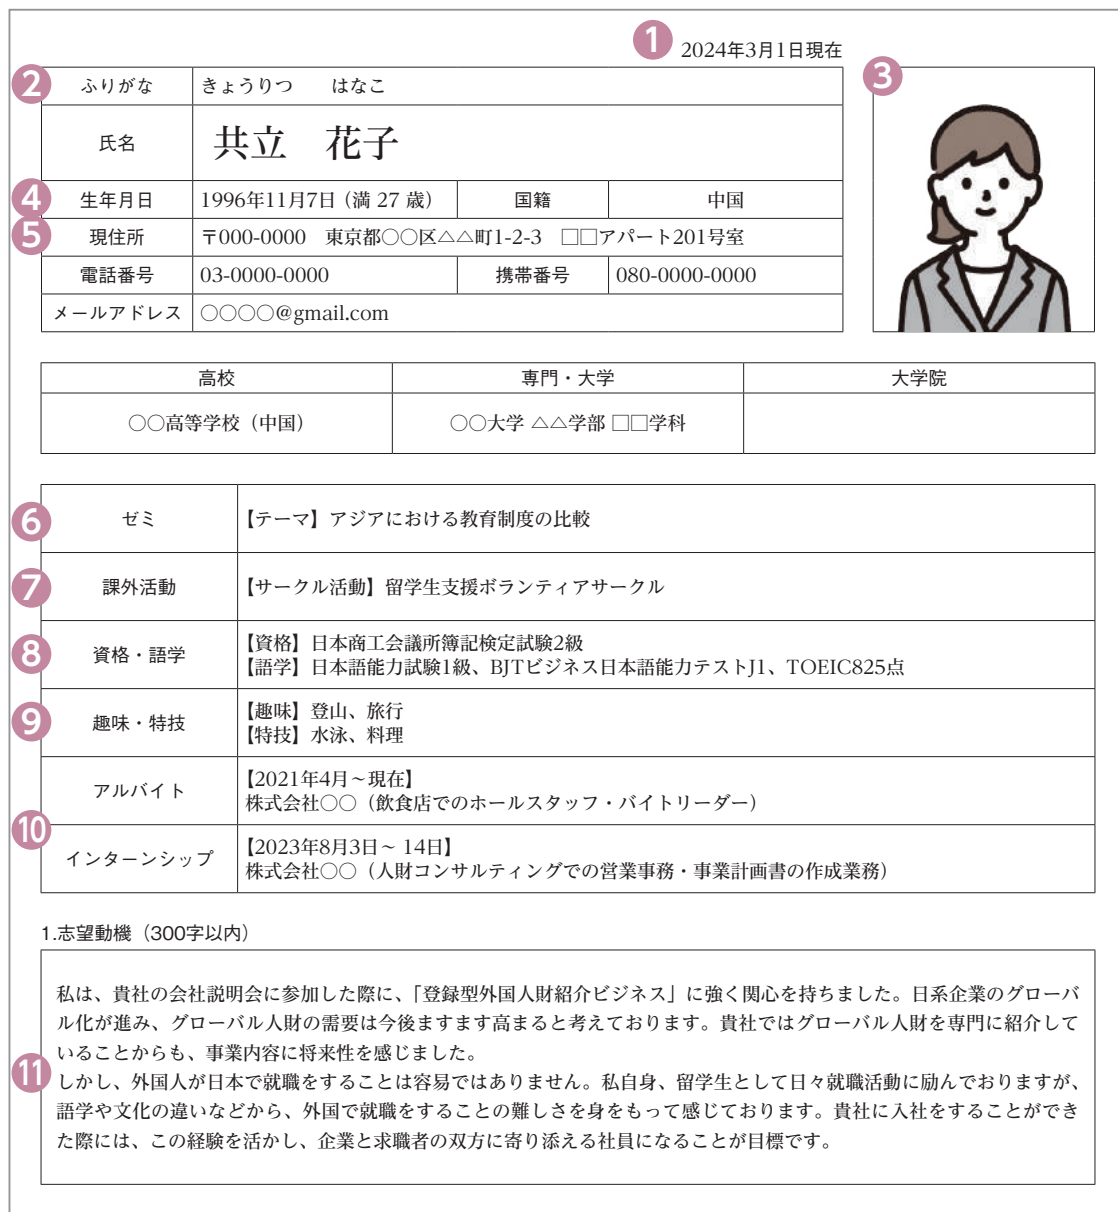 1 2024年3月1日現在
2 ふりがな きょうりつ　はなこ
3
氏名 共立　花子
4 生年月日 1996年11月7日（満 27 歳） 国籍 中国
5 現住所 〒000-0000　東京都○○区△△町1-2-3　□□アパート201号室
電話番号 03-0000-0000 携帯番号 080-0000-0000
メールアドレス ○○○○@gmail.com
高校 専門・大学 大学院
○○高等学校（中国） ○○大学 △△学部 □□学科
6 ゼミ 【テーマ】アジアにおける教育制度の比較
7 課外活動 【サークル活動】留学生支援ボランティアサークル
8 資格・語学 【資格】日本商工会議所簿記検定試験2級
【語学】日本語能力試験1級、BJTビジネス日本語能力テストJ1、TOEIC825点
9 趣味・特技 【趣味】登山、旅行
【特技】水泳、料理
アルバイト 【2021年4月～現在】
株式会社○○（飲食店でのホールスタッフ・バイトリーダー）
10
インターンシップ 【2023年8月3日～ 14日】
株式会社○○（人財コンサルティングでの営業事務・事業計画書の作成業務）
1.志望動機（300字以内）
私は、貴社の会社説明会に参加した際に、「登録型外国人財紹介ビジネス」に強く関心を持ちました。日系企業のグローバ
ル化が進み、グローバル人財の需要は今後ますます高まると考えております。貴社ではグローバル人財を専門に紹介して
いることからも、事業内容に将来性を感じました。
11
しかし、外国人が日本で就職をすることは容易ではありません。私自身、留学生として日々就職活動に励んでおりますが、
語学や文化の違いなどから、外国で就職をすることの難しさを身をもって感じております。貴社に入社をすることができ
た際には、この経験を活かし、企業と求職者の双方に寄り添える社員になることが目標です。